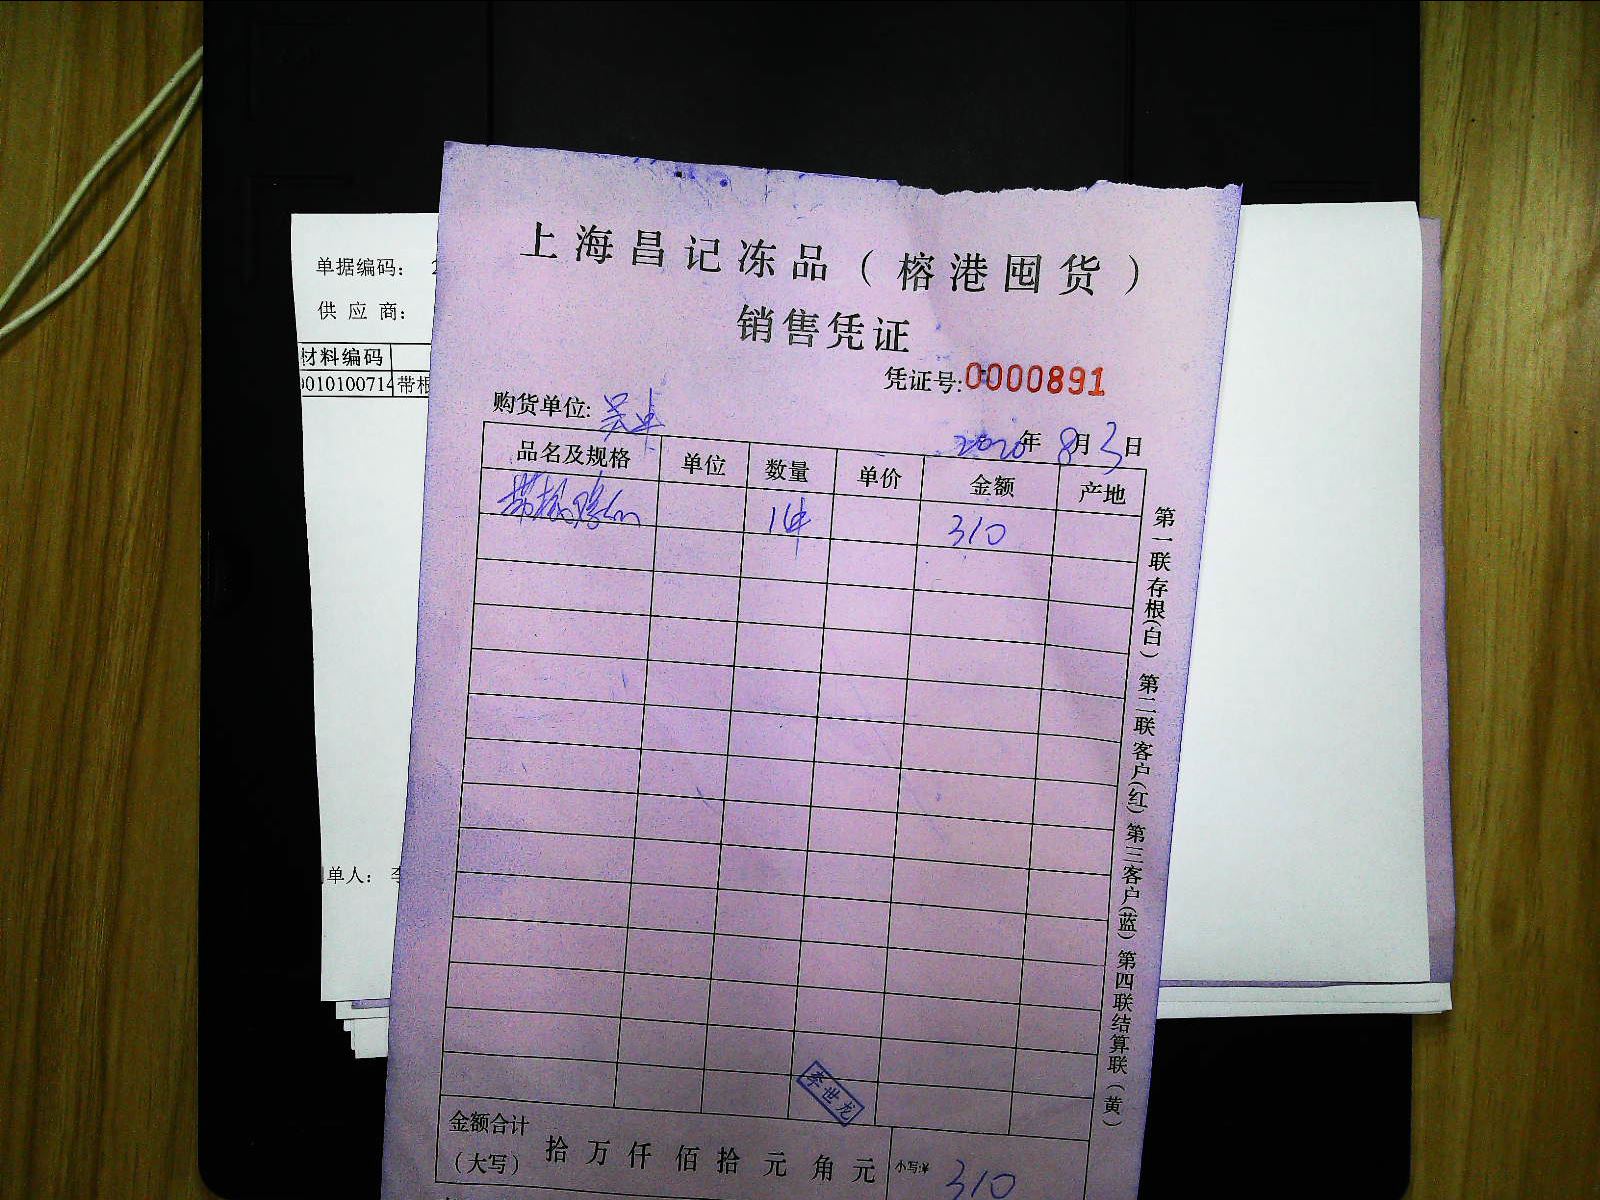 上海昌记冻品（榕港囤货）
销售凭证
凭证号:0000891
购货单位:
2020年 8月3日
品名及规格 单位 数量 单价 金额 产地
1件 310
第一联存根(白) 第二联客户(红) 第三客户(蓝) 第四联结算联(黄)
李世龙
金额合计
（大写） 拾 万 仟 佰 拾 元 角 元 小写:¥ 310
单据编码： 2
供 应 商：
材料编码
0010100714 带根
单人： 李